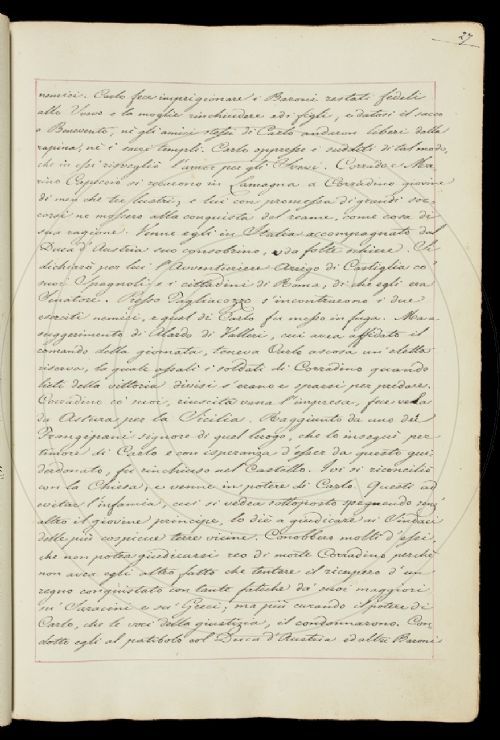 27
nemici. Carlo fece imprigionare i Baroni restati fedeli
allo Svevo e la moglie rinchiudere ed i figli, e datosi il sacco
a Benevento, nè gli amici stessi di Carlo andaron liberi dalla
rapina, nè i sacri templi. Carlo oppresse i sudditi di tal modo,
che in essi risvegliò l'amor per gli Svevi. Corrado e Ma
rino Capecio si recarono in Lamagna a Corradino giovine
di men che tre lustri, e lui con promessa di grandi soc
corsi ne mossero alla conquista del reame, come cosa di
sua ragione. Venne egli in Italia accompagnato dal
Duca d'Austria suo consobrino, e da folte schiere. Si
dichiarò per lui l'Avventuriere Arrigo di Castiglia co'
suoi Spagnoli e i cittadini di Roma, di che egli era
Senatore. Presso Tagliacozzo s'incontrarono i due
eserciti nemici, e quel di Carlo fu messo in fuga. Ma a
suggerimento di Alardo di Valleri, cui avea affidato il
comando della giornata, teneva Carlo ascosa un'eletta
riserva, la quale assalì i soldati di Corradino quando
lieti della vittoria divisi s'erano e sparsi per predare.
Corradino co' suoi, riuscita vana l'impresa, fece vela
da Astura per la Sicilia. Raggiunto da uno dei
Frangipani signore di quel luogo, che lo inseguì per
timore di Carlo e con isperanza d'esser da questo gui
derdonato, fu rinchiuso nel Castello. Ivi si riconciliò
con la Chiesa, e venne in potere di Carlo. Questi ad
evitar l'infamia, cui si vedea sottoposto spegnendo senz'
altro il giovine principe, lo diè a giudicare ai Sindaci
delle più cospicue terre vicine. Conobbero molti d'essi,
che non potea giudicarsi reo di morte Corradino perchè
non avea egli altro fatto che tentare il ricupero d'un
regno conquistato con tante fatiche da' suoi maggiori
su' Saracini e su' Greci; ma più curando il potere di
Carlo, che le voci della giustizia, il condonnarono. Con
dotto egli al patibolo col Duca d'Austria ed altri Baroni